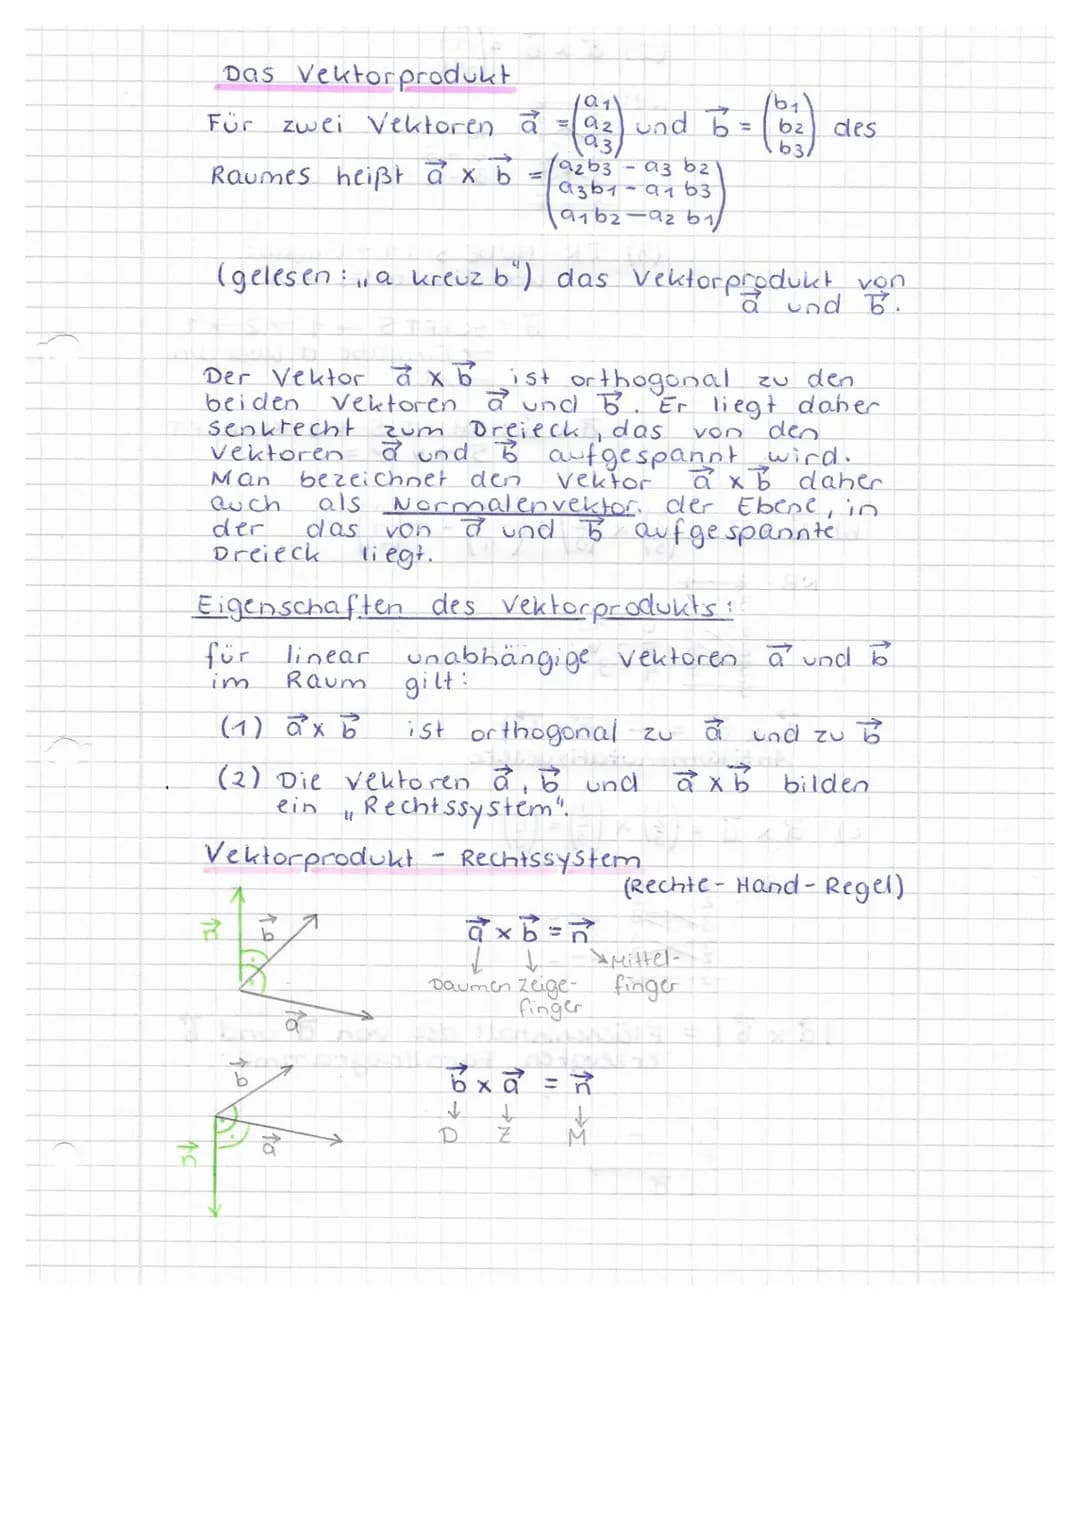 Das Vektorprodukt
Für zwei Vektoren a⃗ = (a1 a2 a3) und b⃗ = (b1 b2 b3) des
Raumes heißt a⃗ x b⃗ = (a2b3 - a3 b2
a3b1 - a1 b3
a1b2 - a2 b1)
(gelesen: „a kreuz b") das Vektorprodukt von
a⃗ und b⃗.
Der Vektor a⃗ x b⃗ ist orthogonal zu den
beiden Vektoren a⃗ und b⃗. Er liegt daher
senkrecht zum Dreieck, das von den
Vektoren a⃗ und b⃗ aufgespannt wird.
Man bezeichnet den Vektor a⃗ x b⃗ daher
auch als Normalenvektor der Ebene, in
der das von a⃗ und b⃗ aufgespannte
Dreieck liegt.
Eigenschaften des Vektorprodukts:
für linear unabhängige Vektoren a⃗ und b⃗
im Raum gilt:
(1) a⃗ x b⃗ ist orthogonal zu a⃗ und zu b⃗
(2) Die Vektoren a⃗, b⃗ und a⃗ x b⃗ bilden
ein „Rechtssystem".
Vektorprodukt - Rechtssystem
(Rechte-Hand-Regel)
n⃗ b⃗
a⃗
a⃗ x b⃗ = n⃗
↓ ↓ ↘ Mittel-
Daumen Zeige- finger
finger
b⃗
n⃗ a⃗
b⃗ x a⃗ = n⃗
↓ ↓ ↓
D Z M